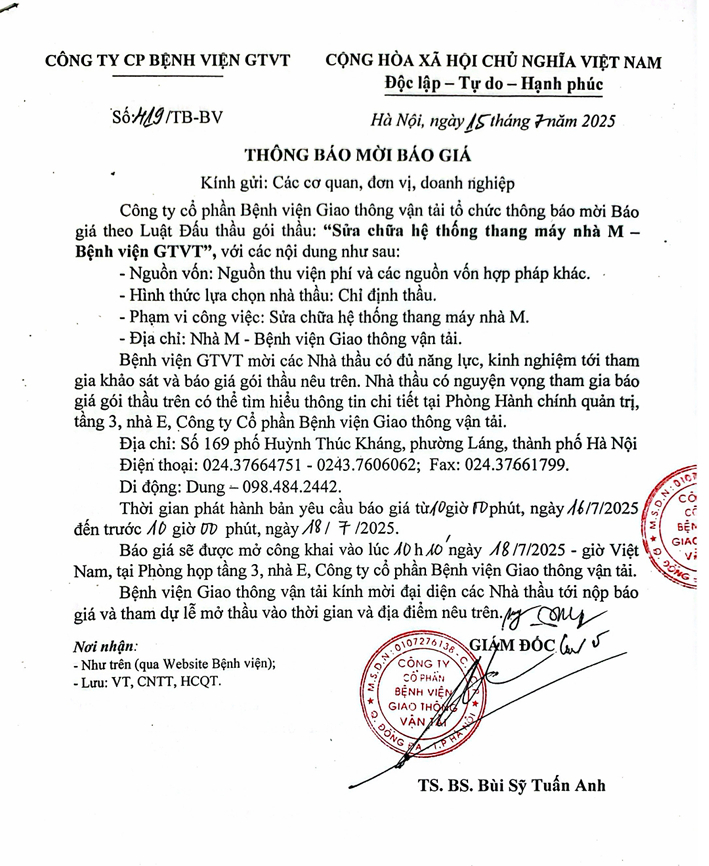 CÔNG TY CP BỆNH VIỆN GTVT
CỘNG HÒA XÃ HỘI CHỦ NGHĨA VIỆT NAM
Độc lập – Tự do – Hạnh phúc
Số: 419/TB-BV
Hà Nội, ngày 15 tháng 7 năm 2025
THÔNG BÁO MỜI BÁO GIÁ
Kính gửi: Các cơ quan, đơn vị, doanh nghiệp
Công ty cổ phần Bệnh viện Giao thông vận tải tổ chức thông báo mời Báo
giá theo Luật Đấu thầu gói thầu: “Sửa chữa hệ thống thang máy nhà M –
Bệnh viện GTVT”, với các nội dung như sau:
- Nguồn vốn: Nguồn thu viện phí và các nguồn vốn hợp pháp khác.
- Hình thức lựa chọn nhà thầu: Chỉ định thầu.
- Phạm vi công việc: Sửa chữa hệ thống thang máy nhà M.
- Địa chỉ: Nhà M - Bệnh viện Giao thông vận tải.
Bệnh viện GTVT mời các Nhà thầu có đủ năng lực, kinh nghiệm tới tham
gia khảo sát và báo giá gói thầu nêu trên. Nhà thầu có nguyện vọng tham gia báo
giá gói thầu trên có thể tìm hiểu thông tin chi tiết tại Phòng Hành chính quản trị,
tầng 3, nhà E, Công ty Cổ phần Bệnh viện Giao thông vận tải.
Địa chỉ: Số 169 phố Huỳnh Thúc Kháng, phường Láng, thành phố Hà Nội
Điện thoại: 024.37664751 - 0243.7606062; Fax: 024.37661799.
Di động: Dung – 098.484.2442.
Thời gian phát hành bản yêu cầu báo giá từ 10 giờ 00 phút, ngày 16/7/2025
đến trước 10 giờ 00 phút, ngày 18/ 7 /2025.
Báo giá sẽ được mở công khai vào lúc 10 h 10' ngày 18/7/2025 - giờ Việt
Nam, tại Phòng họp tầng 3, nhà E, Công ty cổ phần Bệnh viện Giao thông vận tải.
Bệnh viện Giao thông vận tải kính mời đại diện các Nhà thầu tới nộp báo
giá và tham dự lễ mở thầu vào thời gian và địa điểm nêu trên.
Nơi nhận:
- Như trên (qua Website Bệnh viện);
- Lưu: VT, CNTT, HCQT.
GIÁM ĐỐC
M.S.D.N: 0107276138 - C.
CÔNG TY
CỔ PHẦN
BỆNH VIỆN
GIAO THÔNG
VẬN TẢI
Q. ĐỐNG ĐA - T.P HÀ NỘI
TS. BS. Bùi Sỹ Tuấn Anh